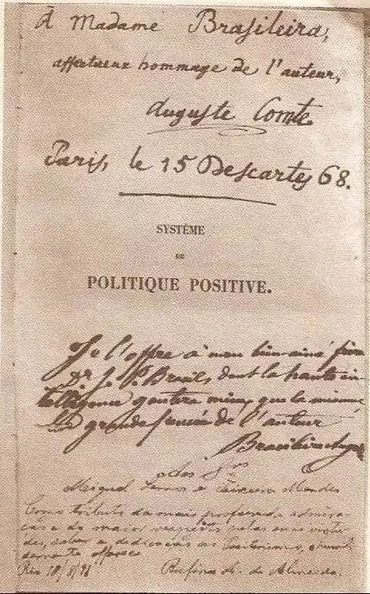 À Madame Brasileira,
affectueux hommage de l'auteur,
Auguste Comte.
Paris, le 15 Descartes 68.
SYSTÈME
DE
POLITIQUE POSITIVE.
Je l'offre à mon bien aimé frère
Dr J. P. Brasil, dont la haute in
telligence goutera mieux que la mienne
la grande pensée de l'auteur
Aos Snrs
Miguel Lemos e Teixeira Mendes
Como tributo da mais profunda admira
ção e do maior respeito
saber e dedicação ao Positivismo,
offerece
Rufina de Almeida.